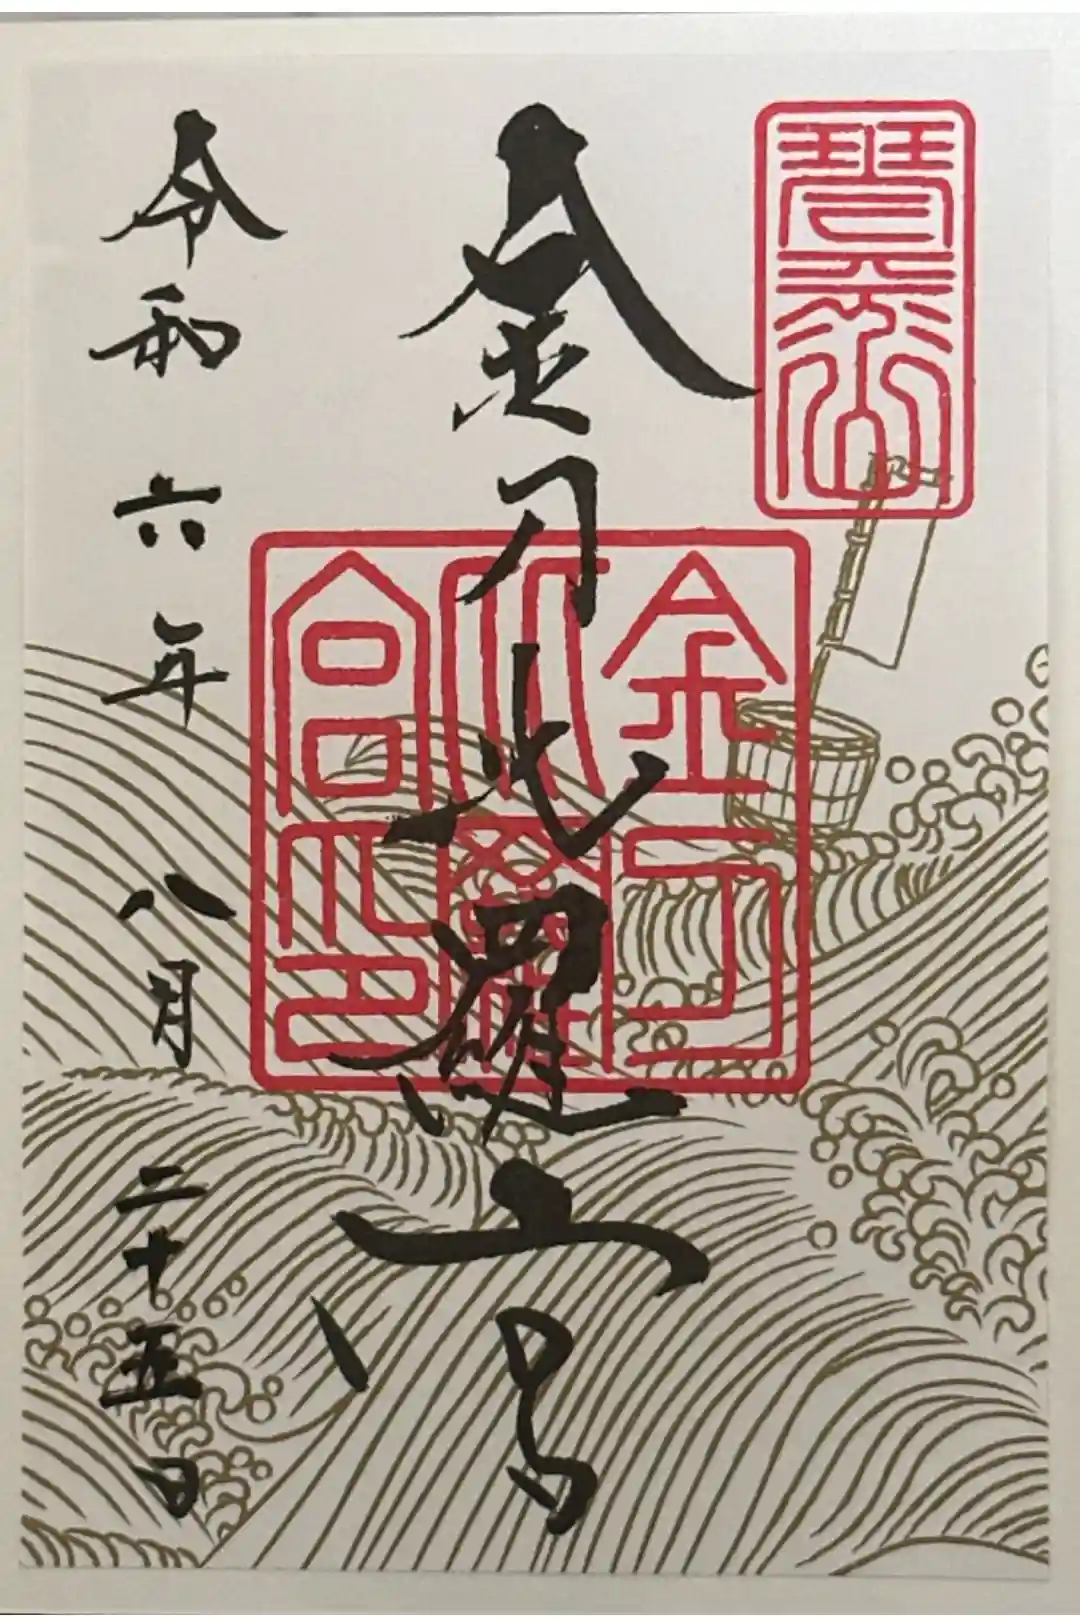 琴平山
金刀比羅宮
金刀比羅宮印
令和六年八月二十五日